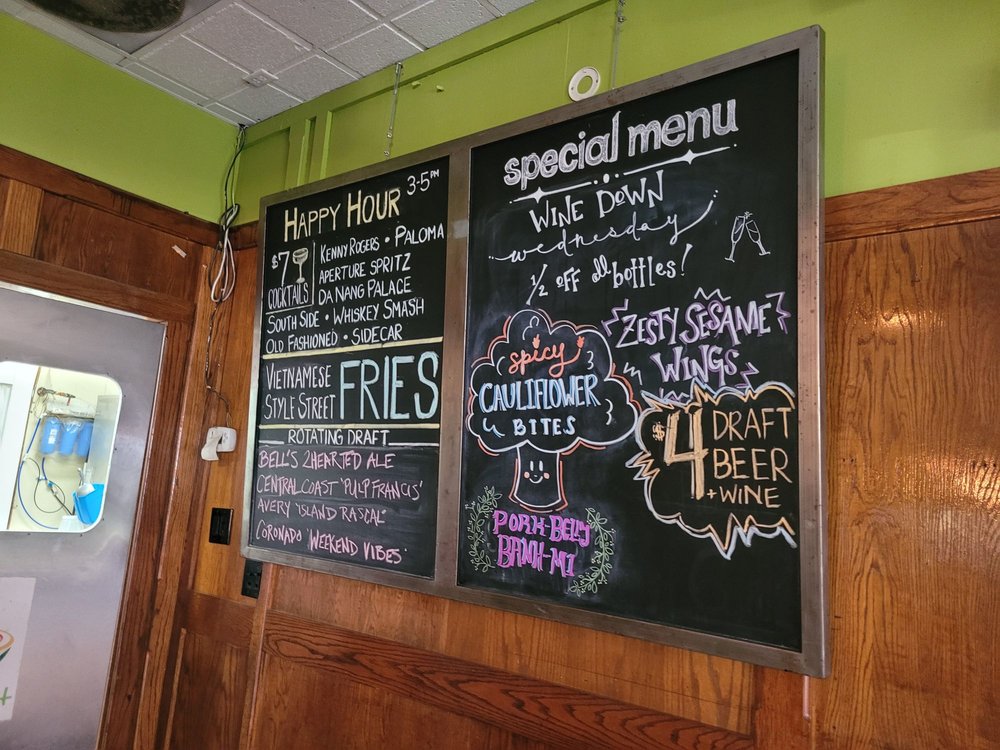 HAPPY HOUR 3-5PM
$7 COCKTAILS
KENNY ROGERS • PALOMA
APERTURE SPRITZ
DA NANG PALACE
SOUTH SIDE • WHISKEY SMASH
OLD FASHIONED • SIDECAR
VIETNAMESE
STYLE STREET
FRIES
ROTATING DRAFT
BELL'S 2HEARTED ALE
CENTRAL COAST 'PULP FRANCIS'
AVERY "ISLAND RASCAL"
CORONADO 'WEEKEND VIBES'
special menu
WINE DOWN
wednesday
1/2 OFF all bottles!
ZESTY SESAME
WINGS
spicy
CAULIFLOWER
BITES
$4 DRAFT
BEER
+ WINE
PORK BELLY
BAHN-MI